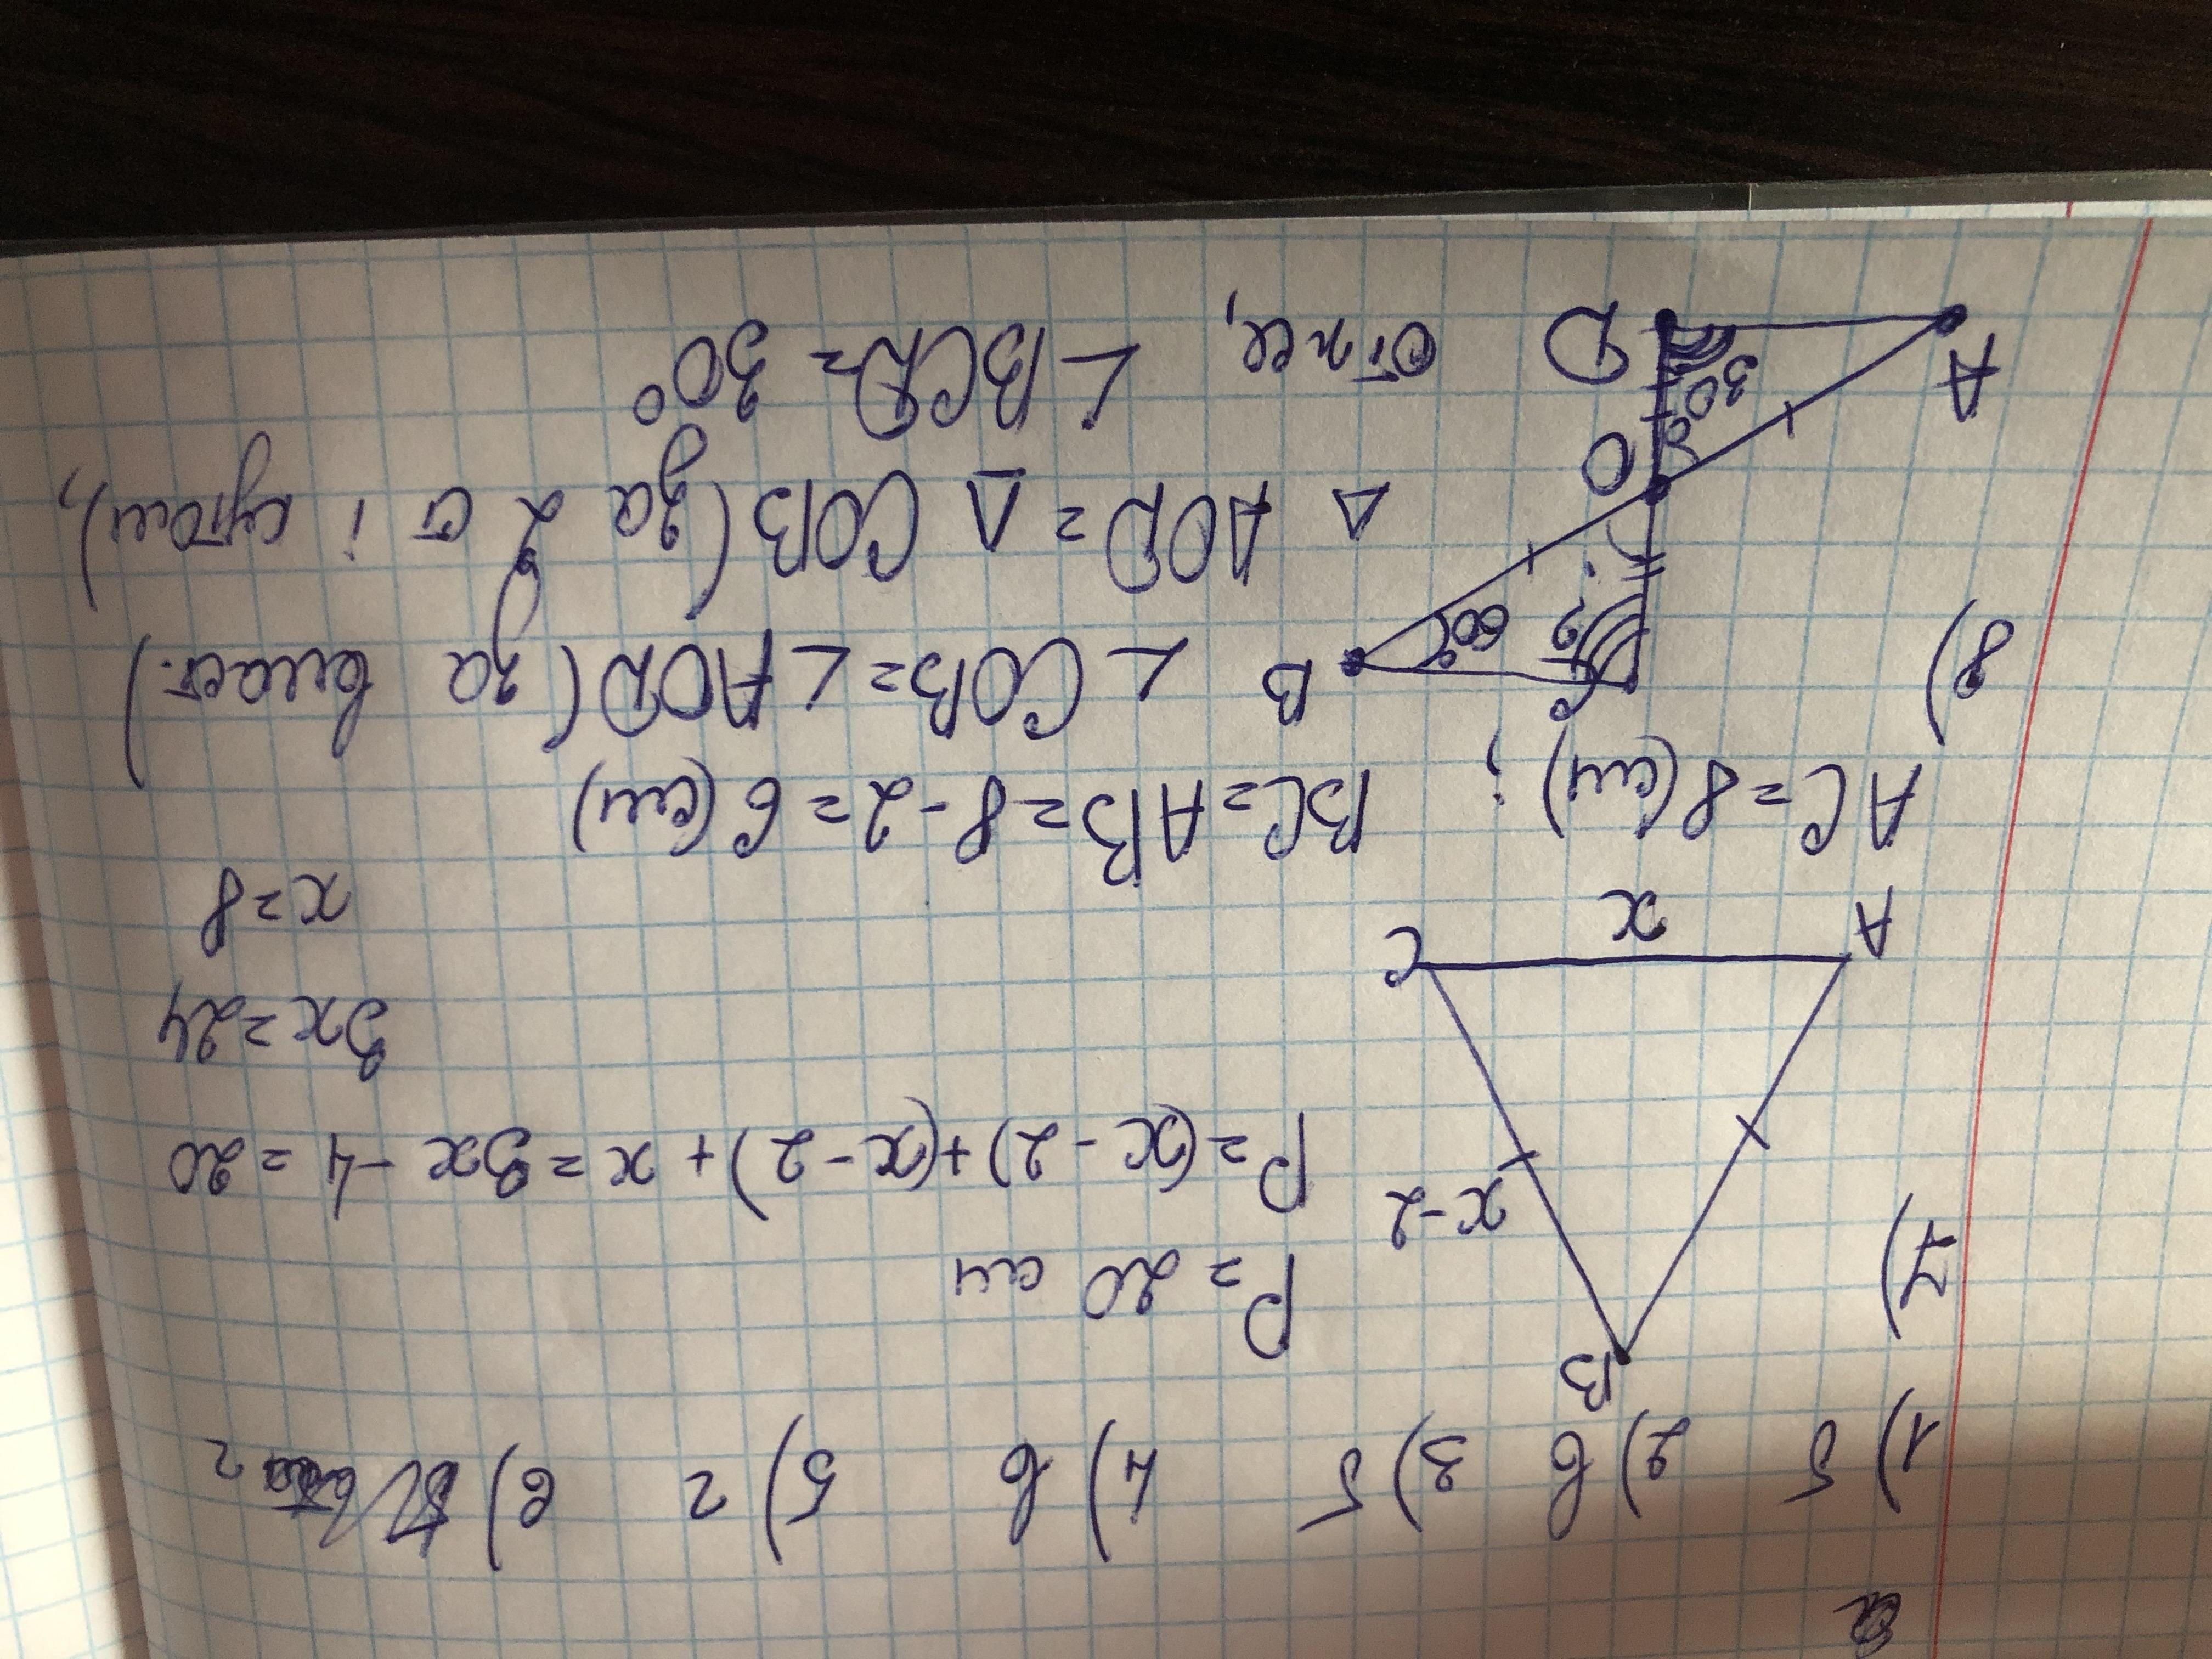 1) б 2) в 3) б 4) в 5) г 6) г
7)
B
P = 20 см
x-2
P = (x-2)+(x-2)+x = 3x-4 = 20
3x=24
A x C
x=8
AC=8(см); BC=AB=8-2=6(см)
8) C B ∠COB=∠AOD (за власт.)
60° ?
O ΔAOD=ΔCOB (за 2 ст і кутом),
30°
A D отже, ∠BCD=30°